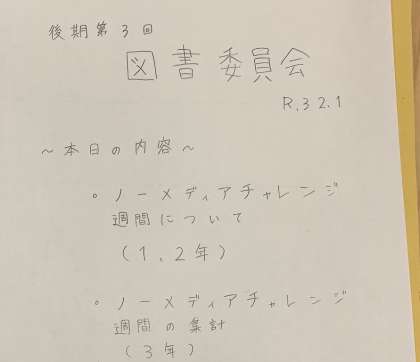 後期第3回
図書委員会
R.3 2.1
～本日の内容～
・ノーメディアチャレンジ
週間について
(1、2年)
・ノーメディアチャレンジ
週間の集計
(3年)